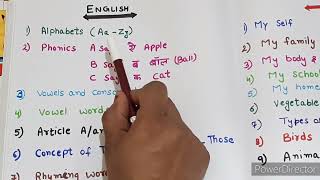 ENGLISH
1) Alphabets (Aa - Zz)
2) Phonics A say से Apple
B say ब बॉल (Ball)
C say क Cat
3) Vowels and Conso
4) Vowel words
5) Article A/an
6) Concept of T Those
7) Rhyming words
1) My Self
2) My family
3) My body &
My hom
6) Vegetable
7) Types
8) Birds
9) Anima
Made With
PowerDirector